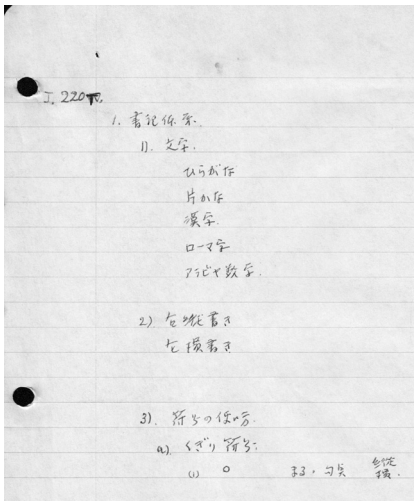 J. 220
1. 書記体系.
1). 文字.
ひらがな
片かな
漢字.
ローマ字
アラビヤ数字.
2) 縦書き
横書き
3). 符号の使い方.
a). くぎり符号:
(1) 。 まる、句点 縦 横.